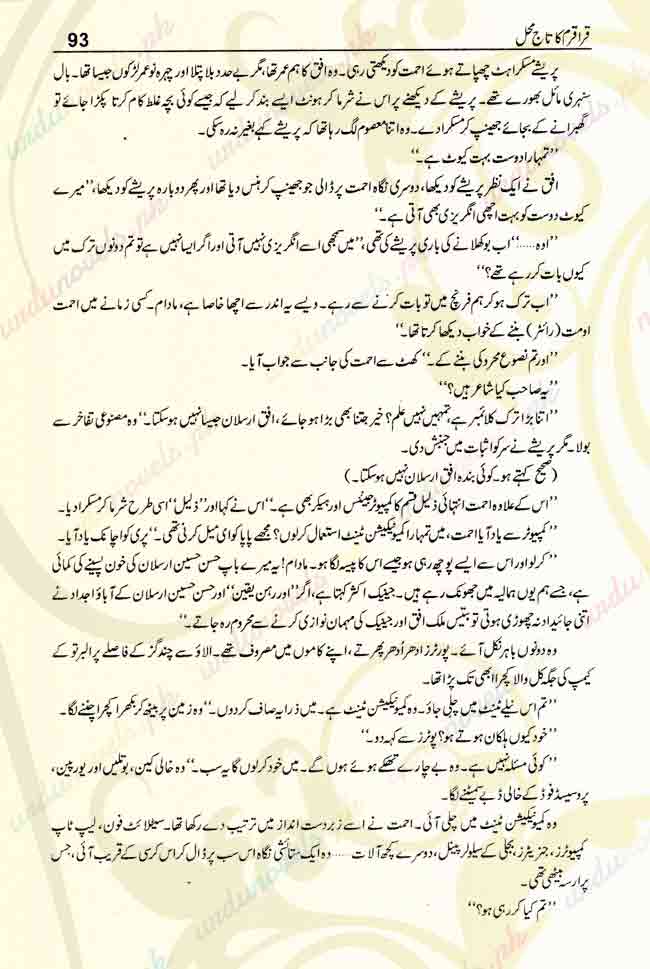 قراقرم کا تاج محل
93
پریشے مسکراہٹ چھپاتے ہوئے احمت کو دیکھتی رہی۔ وہ افق کا ہم عمر تھا، مگر بے حد دبلا پتلا اور چہرہ نوعمر لڑکوں جیسا تھا۔ بال
سنہری مائل بھورے تھے۔ پریشے کے دیکھنے پر اس نے شرما کر ہونٹ ایسے بند کر لیے کہ جیسے کوئی بچہ غلط کام کرتا پکڑا جائے تو
گھبرانے کے بجائے جھینپ کر مسکرا دے۔ وہ اتنا معصوم لگ رہا تھا کہ پریشے کہے بغیر نہ رہ سکی۔
’’تمہارا دوست بہت کیوٹ ہے۔‘‘
افق نے ایک نظر پریشے کو دیکھا، دوسری نگاہ احمت پر ڈالی جو جھینپ کر ہنس دیا تھا اور پھر دوبارہ پریشے کو دیکھا، ’’میرے
کیوٹ دوست کو بہت اچھی انگریزی بھی آتی ہے۔‘‘
’’اوہ……‘‘ اب بوکھلانے کی باری پریشے کی تھی، ’’میں سمجھی اسے انگریزی نہیں آتی اور اگر ایسا نہیں ہے تو تم دونوں ترک میں
کیوں بات کر رہے تھے؟‘‘
’’اب ترک ہو کر ہم فرنچ میں تو بات کرنے سے رہے۔ ویسے یہ اندر سے اچھا خاصا ہے، مادام۔ کسی زمانے میں احمت
اومت (رائٹر) بننے کے خواب دیکھا کرتا تھا۔‘‘
’’اور تم نصوع محرو کی بننے کے۔‘‘ کھٹ سے احمت کی جانب سے جواب آیا۔
’’یہ صاحب کیا شاعر ہیں؟‘‘
’’اتنا بڑا ترک کلائمبر ہے، تمہیں نہیں علم؟ خیر جتنا بھی بڑا ہو جائے، افق ارسلان جیسا نہیں ہو سکتا۔‘‘ وہ مصنوعی تفاخر سے
بولا۔ مگر پریشے نے سر کو اثبات میں جنبش دی۔
(صحیح کہتے ہو۔ کوئی بندہ افق ارسلان نہیں ہو سکتا۔)
’’اس کے علاوہ احمت انتہائی ذلیل قسم کا کمپیوٹر جینئس اور ہیکر بھی ہے۔‘‘ اس نے کہا اور ’’ذلیل‘‘ اسی طرح شرما کر مسکرا دیا۔
’’کمپیوٹر سے یاد آیا احمت، میں تمہارا کمیونیکیشن ٹینٹ استعمال کر لوں؟ مجھے پاپا کو ای میل کرنی تھی۔‘‘ پری کو اچانک یاد آیا۔
’’کر لو اور اس سے ایسے پوچھ رہی ہو جیسے اس کا پیسہ لگا ہو۔ مادام! یہ میرے باپ حسن حسین ارسلان کی خون پسینے کی کمائی
ہے، جسے ہم یوں ہمالیہ میں جھونک رہے ہیں۔ جینیک اکثر کہتا ہے، اگر ’’اور بہن یقین‘‘ اور حسن حسین ارسلان کے آباؤ اجداد نے
اتنی جائیداد نہ چھوڑی ہوتی تو بتیس ملک افق اور جینیک کی مہمان نوازی کرنے سے محروم رہ جاتے۔‘‘
وہ دونوں باہر نکل آئے۔ پورٹرز ادھر اُدھر پھرتے، اپنے کاموں میں مصروف تھے۔ الاؤ سے چند گز کے فاصلے پر البرتو کے
کیمپ کی جگہ کل والا کچرا ابھی تک پڑا تھا۔
’’تم اس نیلے ٹینٹ میں چلی جاؤ۔ وہ کمیونیکیشن ٹینٹ ہے۔ میں ذرا یہ صاف کر دوں۔‘‘ وہ زمین پر بیٹھ کر بکھرا کچرا چننے لگا۔
’’خود کیوں ہلکان ہوتے ہو؟ پورٹرز سے کہہ دو۔‘‘
’’کوئی مسئلہ نہیں ہے۔ وہ بے چارے تھکے ہوئے ہوں گے۔ میں خود کر لوں گا یہ سب۔‘‘ وہ خالی کین، بوتلیں اور یورپین،
پروسیسڈ فوڈ کے خالی ڈبے سمیٹنے لگا۔
وہ کمیونیکیشن ٹینٹ میں چلی آئی۔ احمت نے اسے زبردست انداز میں ترتیب دے رکھا تھا۔ سیٹلائٹ فون، لیپ ٹاپ
کمپیوٹرز، جنریٹرز، بجلی کے سیلولر پینل، دوسرے کچھ آلات…… وہ ایک ستائشی نگاہ اس سب پر ڈال کر اس کرسی کے قریب آئی، جس
پر ارسہ بیٹھی تھی۔
’’تم کیا کر رہی ہو؟‘‘